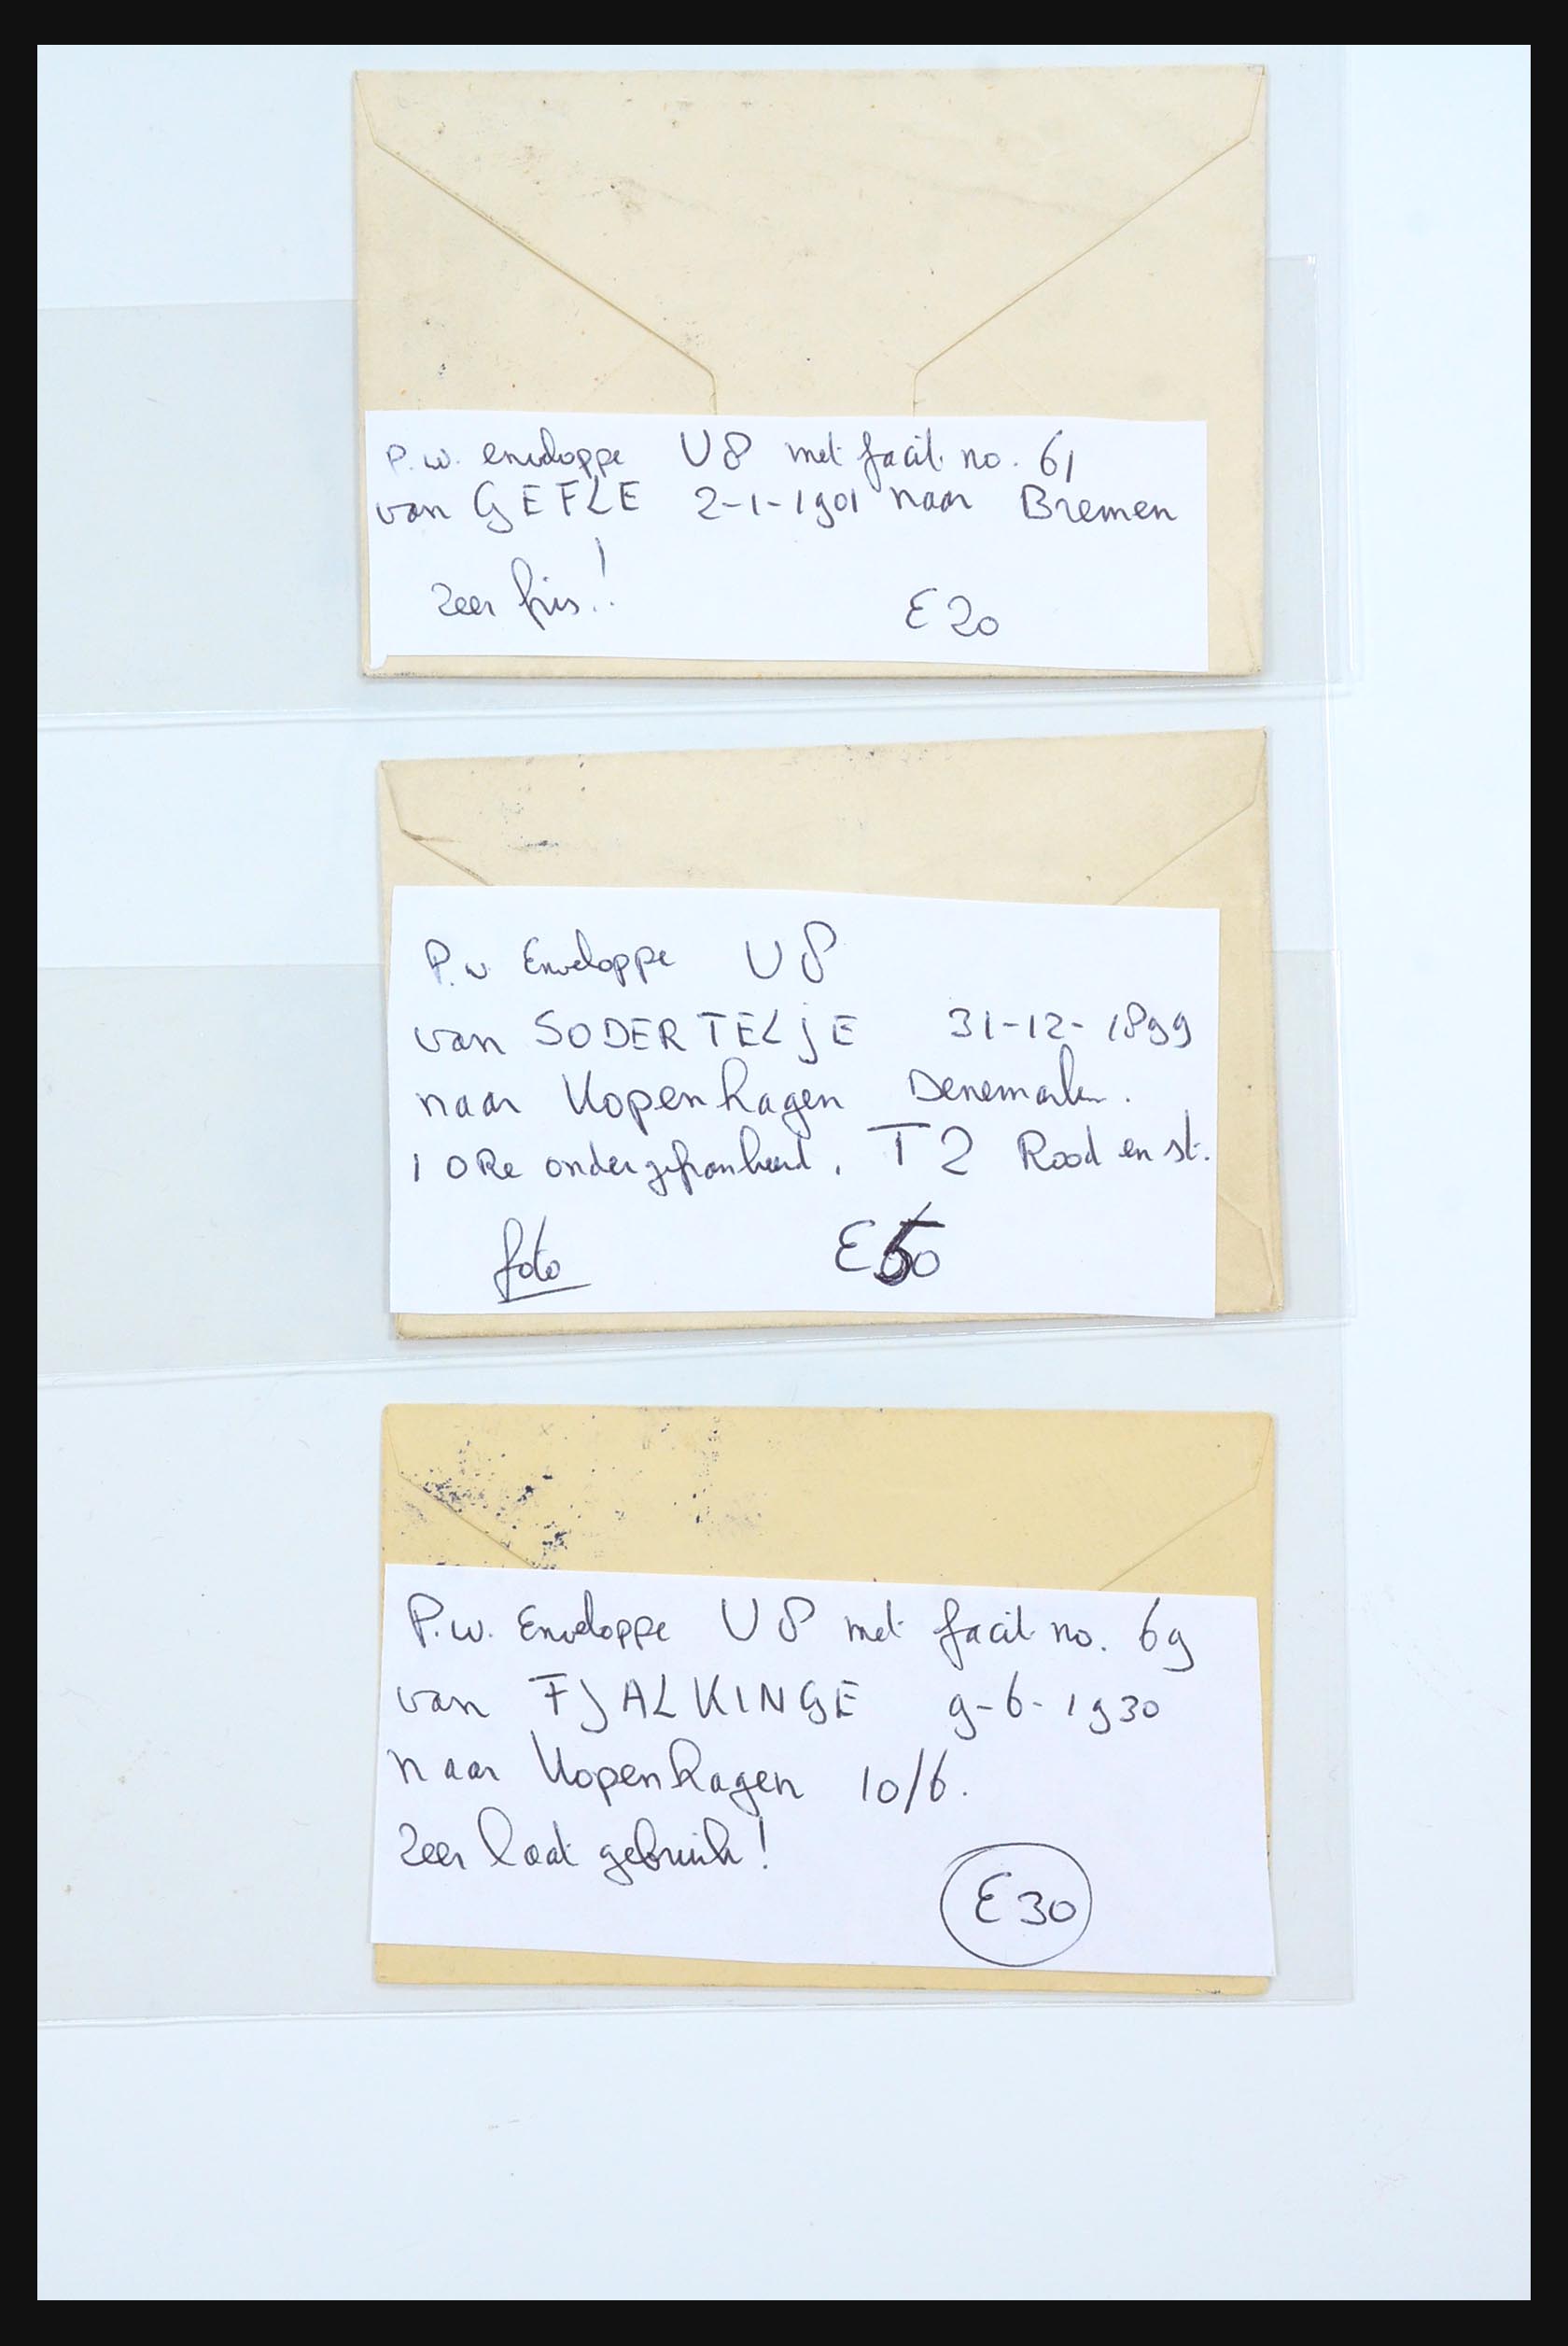 P.w. enveloppe U8 met facit no. 61
van GEFLE 2-1-1901 naar Bremen
Zeer fris!!
E 20
P.w Enveloppe U8
van SODERTELJE 31-12-1899
naar Kopenhagen Denemarken.
1 ORe ondergefrankeerd. T2 Rood en st.
foto E50
P.w. Enveloppe U8 met facit no. 69
van FJALKINGE 9-6-1930
naar Kopenhagen 10/6.
Zeer laat gebruik!
E 30